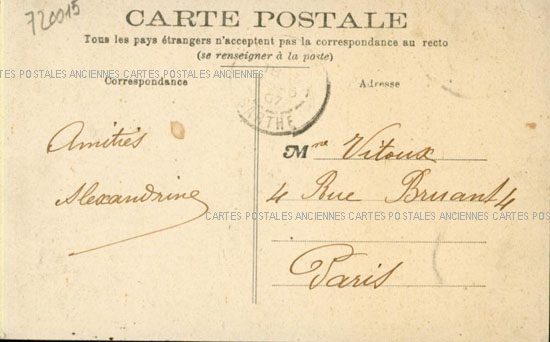 720015
CARTE POSTALE
Tous les pays étrangers n'acceptent pas la correspondance au recto
(se renseigner à la poste)
CARTES POSTALES ANCIENNES CARTES POSTALES ANCIENNES CARTES POSTALES ANCIENNES CARTES POSTALES
Correspondance
Adresse
Amitiés
Alexandrine
Mme Vitoux
4 Rue Bruant 4
CARTES POSTALES ANCIENNES CARTES POSTALES ANCIENNES CARTES POSTALES
Paris